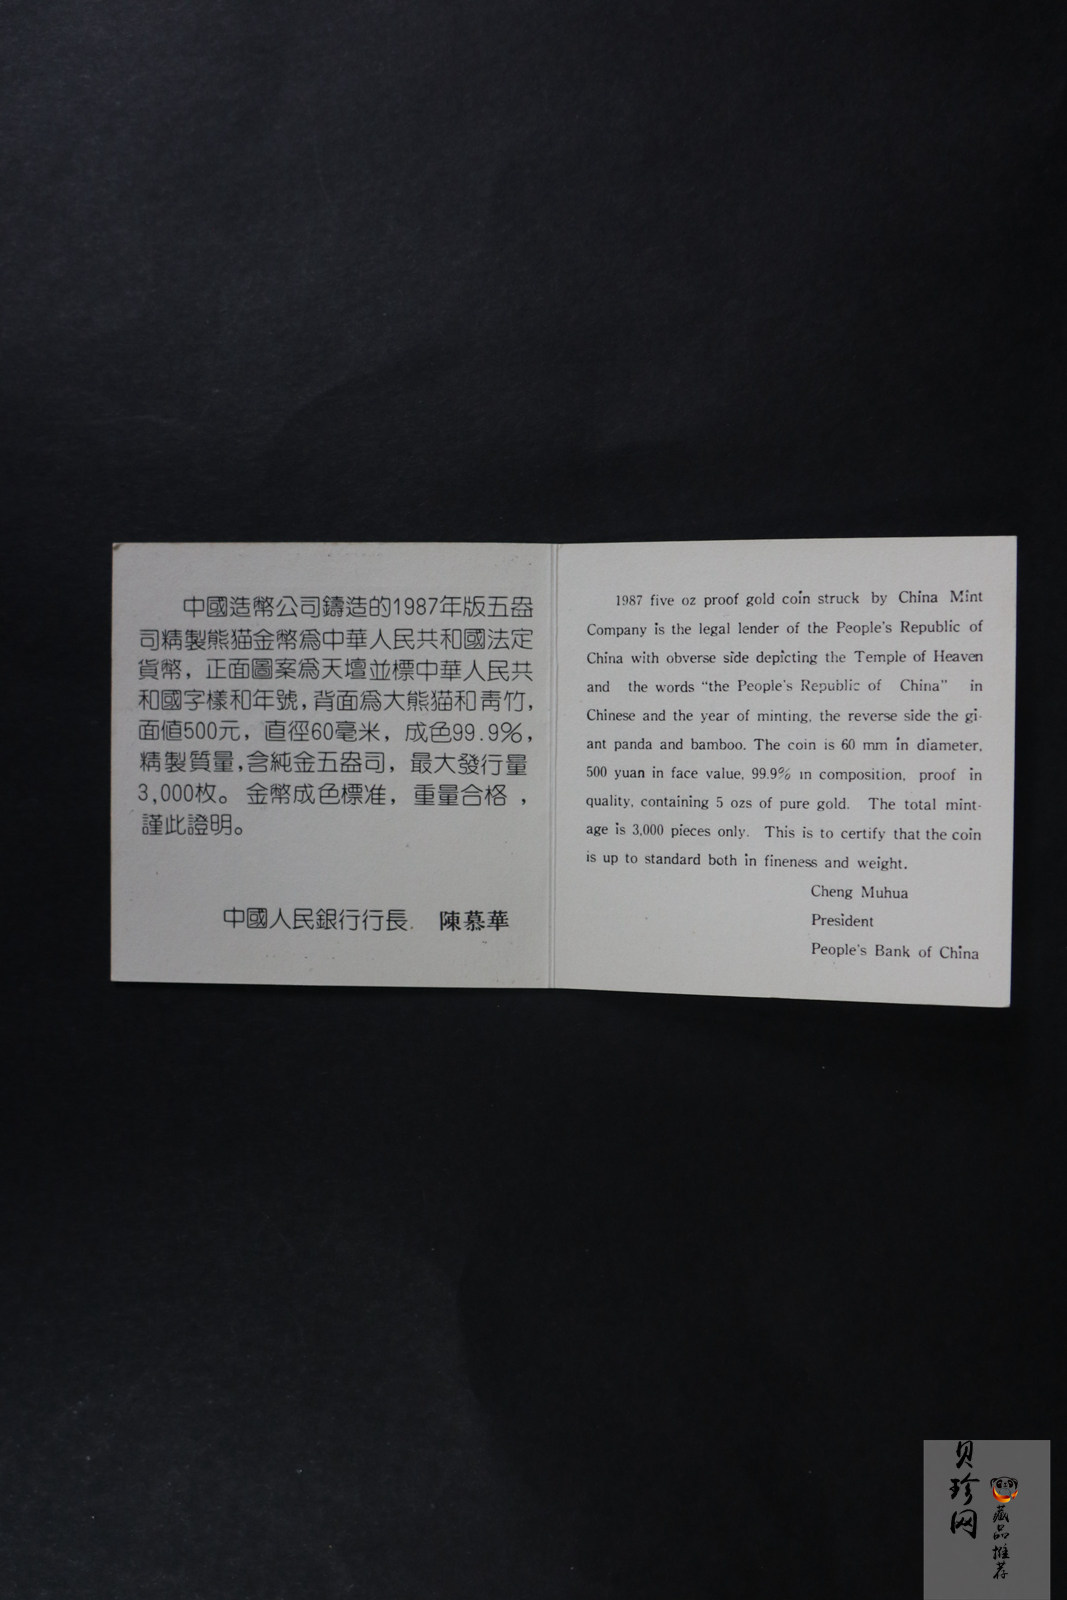 中國造幣公司鑄造的1987年版五盎
司精製熊猫金幣爲中華人民共和國法定
貨幣，正面圖案爲天壇並標中華人民共
和國字樣和年號，背面爲大熊猫和靑竹，
面值500元，直徑60毫米，成色99.9%，
精製質量，含純金五盎司，最大發行量
3,000枚。金幣成色標准，重量合格，
謹此證明。
中國人民銀行行長 陳慕華
1987 five oz proof gold coin struck by China Mint
Company is the legal lender of the People's Republic of
China with obverse side depicting the Temple of Heaven
and the words "the People's Republic of China" in
Chinese and the year of minting, the reverse side the gi-
ant panda and bamboo. The coin is 60 mm in diameter,
500 yuan in face value, 99.9% in composition, proof in
quality, containing 5 ozs of pure gold. The total mint-
age is 3,000 pieces only. This is to certify that the coin
is up to standard both in fineness and weight.
Cheng Muhua
President
People's Bank of China
贝珍网
藏品推荐